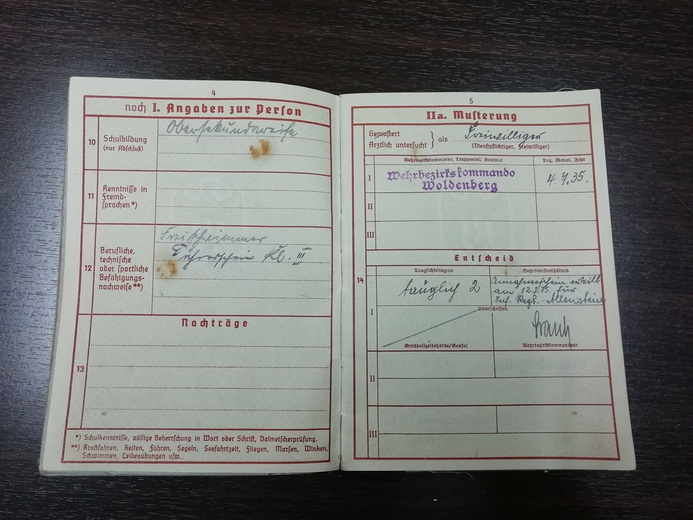 4
noch I. Angaben zur Person
10
Schulbildung
(nur Abschluß)
Obersekundareife
11
Kenntnisse in
Fremd-
sprachen*)
12
Berufliche,
technische
oder sportliche
Befähigungs-
nachweise**)
Freischwimmer
Führerschein Kl. III
Nachträge
13
*) Schulkenntnisse, völlige Beherrschung in Wort oder Schrift, Dolmetscherprüfung.
**) Kraftfahren, Reiten, Fahren, Segeln, Seefahrtzeit, Fliegen, Morsen, Winken,
Schwimmen, Leibesübungen usw.
5
IIa. Musterung
Gemustert
Ärztlich untersucht } als Freiwilliger
(Dienstpflichtiger, Freiwilliger)
Wehrbezirkskommando, Truppenteil, Konsulat
Tag, Monat, Jahr
I
Wehrbezirkskommando
Woldenberg
4.7.35.
II
III
Entscheid
14
Tauglichkeitsgrad
Wehrdienstverhältnis
I
tauglich 2
Annahmeschein erteilt
am 12.7.35. für
Inf. Regt. - Allenstein
Unterschriften
Kreispolizeibehörde/Konsul
Wehrbezirkskommandeur
II
III